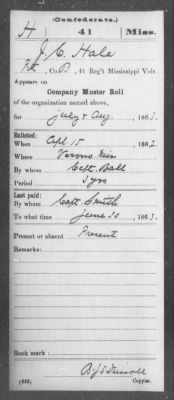 (Confederate.)
H 41 Miss.
J. C. Hale
Pvt, Co. B, 41 Reg't Mississippi Vols
Appears on
Company Muster Roll
of the organization named above,
for July & Aug, 1863.
Enlisted:
When Apl. 15, 1862.
Where Verona Mis
By whom Capt. Ball
Period 3 yrs
Last paid:
By whom Capt. Smith
To what time June 30, 1863.
Present or absent Present
Remarks:
Book mark:
(642)
Copyist.